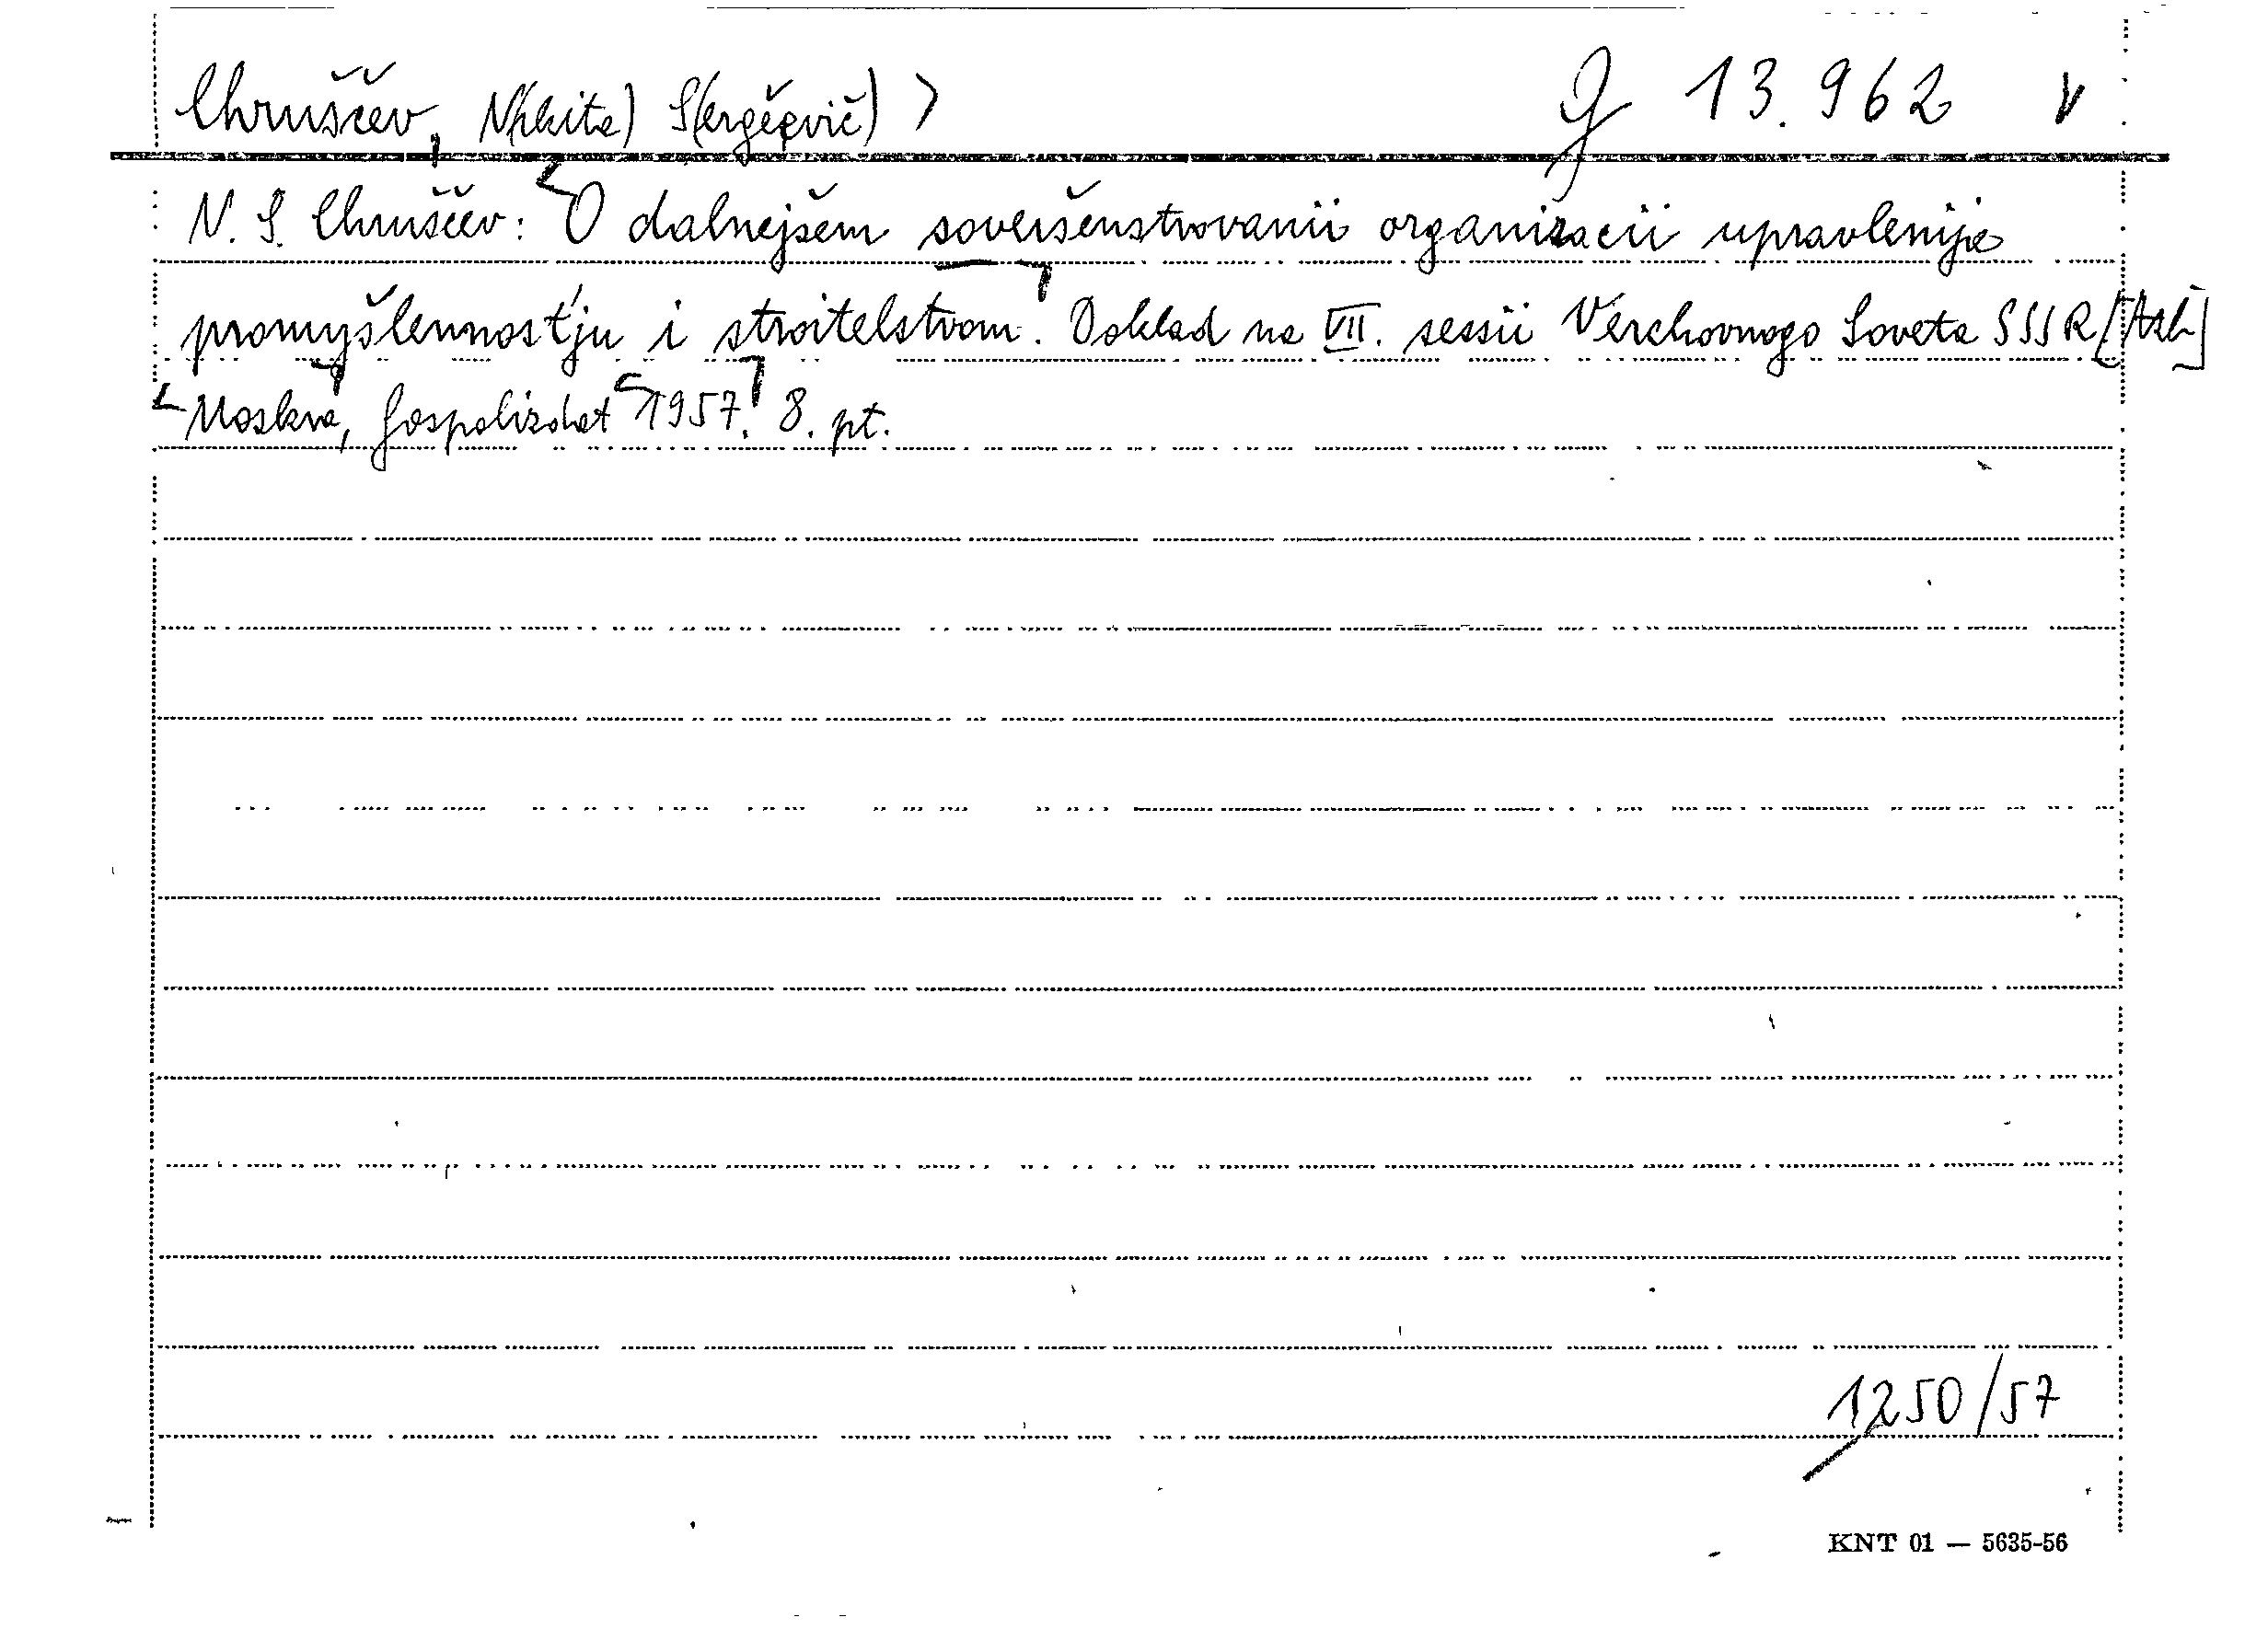 Chruščev, N(ikita) S(ergěevič) > g 13.962 v
N. S. Chruščev: O dalnejšem soveršenstvovanii organizacii upravlenija
promyšlennosťju i stroitelstvom. Doklad na VII. sessii Verchovnogo Soveta SSSR
Moskva, Gospolizdat 1957. 8. pt.
1250/57
KNT 01 — 5635-56